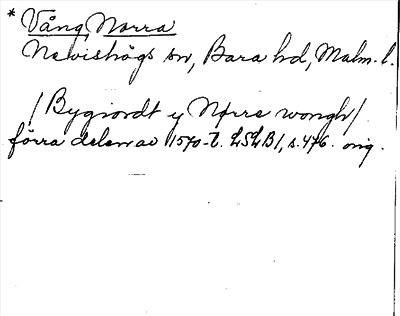 * Vång, Norra
Nevishögs sn, Bara hd, Malm. l.
/Bygiordt y Nørre wongh/
förra delen av 1570-t. LSLB1, s. 476. orig.